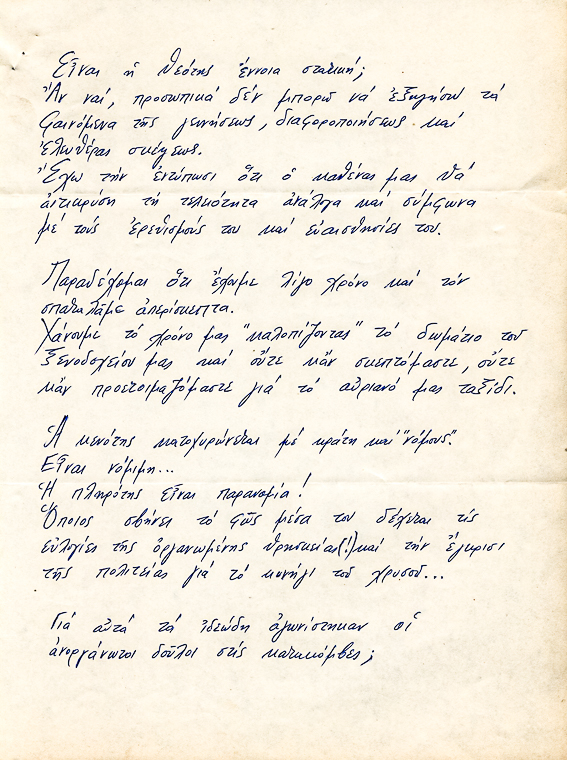 Εἶναι ἡ Θεότης ἔννοια στατική;
Ἄν ναί, προσωπικά δέν μπορῶ νά ἐξηγήσω τά
φαινόμενα τῆς γεννήσεως, διαφοροποιήσεως καί
ἐλευθέρας σκέψεως.
Ἔχω τήν ἐντύπωσι ὅτι ὁ καθένας μας θά
ἀντικρύση τή τελειότητα ἀνάλογα καί σύμφωνα
μέ τούς ἐρεθισμούς του καί εὐαισθησίες του.
Παραδέχομαι ὅτι ἔχουμε λίγο χρόνο καί τόν
σπαταλᾶμε ἀπερίσκεπτα.
Χάνουμε τό χρόνο μας "καλοπίζοντας" τό δωμάτιο τοῦ
ξενοδοχείου μας καί οὔτε κἄν σκεπτόμαστε, οὔτε
κἄν προετοιμαζόμαστε γιά τό αὐριανό μας ταξίδι.
Ἡ κενότης κατοχυρώνεται μέ κράτη καί "νόμους".
Εἶναι νόμιμη...
Ἡ πληρότης εἶναι παρανομία!
Ὅποιος σβήνει τό φῶς μέσα του δέχεται τίς
εὐλογίες τῆς ὀργανωμένης θρησκείας(!) καί τήν ἔγκρισι
τῆς πολιτείας γιά τό κυνήγι τοῦ χρυσοῦ...
Γιά αὐτά τά ἰδεώδη ἀγωνίστηκαν οἱ
ἀνοργάνωτοι δοῦλοι στίς κατακόμβες;